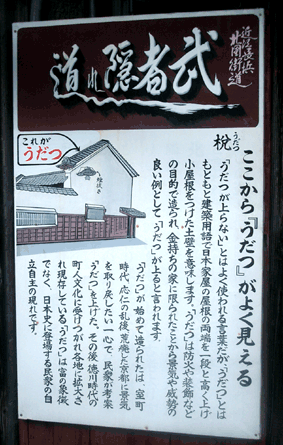 近江長浜
北国街道
武者隠れ道
これが
うだつ
ここから『うだつ』がよく見える
うだつ
梲
「うだつが上らない」とはよく使われる言葉だが、「うだつ」とは
もともと建築用語で日本家屋の屋根の両端を一段と高く上げ
小屋根をつけた土壁を意味します。「うだつ」は防火や装飾など
の目的で造られ、金持ちの家に限られたことから景気や威勢の
良い例として「うだつ」が上ると言われます。
「うだつ」が始めて造られたのは、室町
時代、応仁の乱後、荒廃した京都に景気
を取り戻したい一心で、民家が考案
「うだつ」を上げた。その後徳川時代の
町人文化に受けつがれ各地に拡大さ
れ現存している「うだつ」は富の象徴
でなく、日本史に登場する民家の自
立自主の現れです。